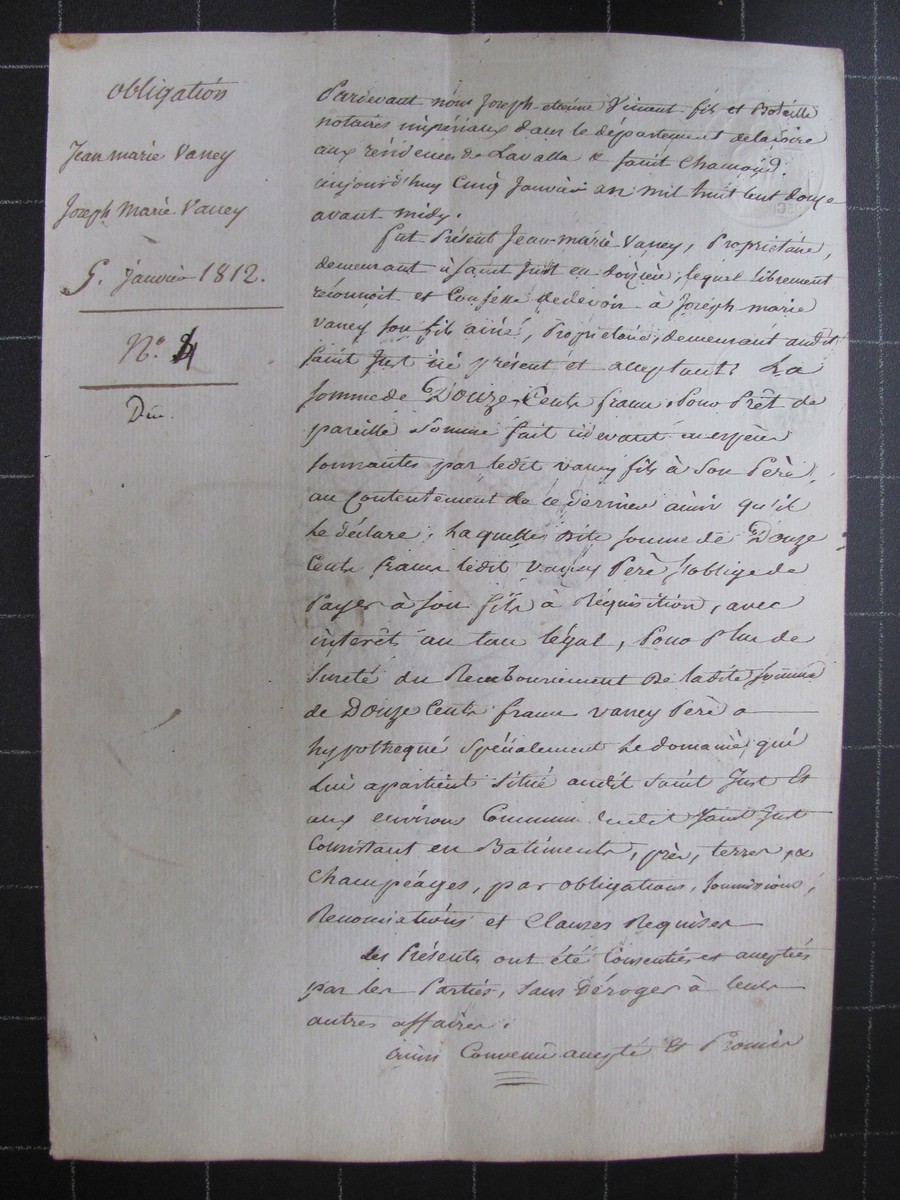 obligation
Jean marie Vancy
Joseph Marie Vancy
5. janvier 1812.
N.° 4
Pardevant nous Joseph-etienne Viment fils et
notaires impériaux dans le département de la loire
aux résidences de Lavalla & saint Chamond.
aujourd'huy Cinq Janvier an mil huit Cent douze
avant midy.
fut Présent Jean-marie Vancy, Propriétaire,
demeurant à Saint Just en doizieu, lequel librement
réconnoit et Confesse de devoir à Joseph marie
Vancy son fils ainé, Propriétaire, demeurant audit
saint Just ici présent et acceptant: La
somme de Douze-Cents francs Pour Prêt de
pareille Somme fait cidevant en espèces
sonnantes par ledit vancy fils à Son Père,
au Contentement de ce dernier ainsi qu'il
le déclare; Laquelle dite somme de Douze
Cents francs ledit vancy Père s'oblige de
Payer à son fils à Réquisition, avec
intérêts au tau légal, Pour Plus de
Sureté du Remboursement De ladite somme
de Douze Cents francs vancy Père a
hypothequé spécialement Le domaine qui
Lui apartient Situé audit Saint Just Et
aux environs Commune dudit Saint Just
Consistant en Batiments, près, terres, &
Champéages, par obligations, soumissions,
Renonciations et Clauses Requises
les Présents ont été Consenties et acceptées
par les Parties, sans Déroger à leurs
autres affaires.
ainsi Convenu accepté Et Promis